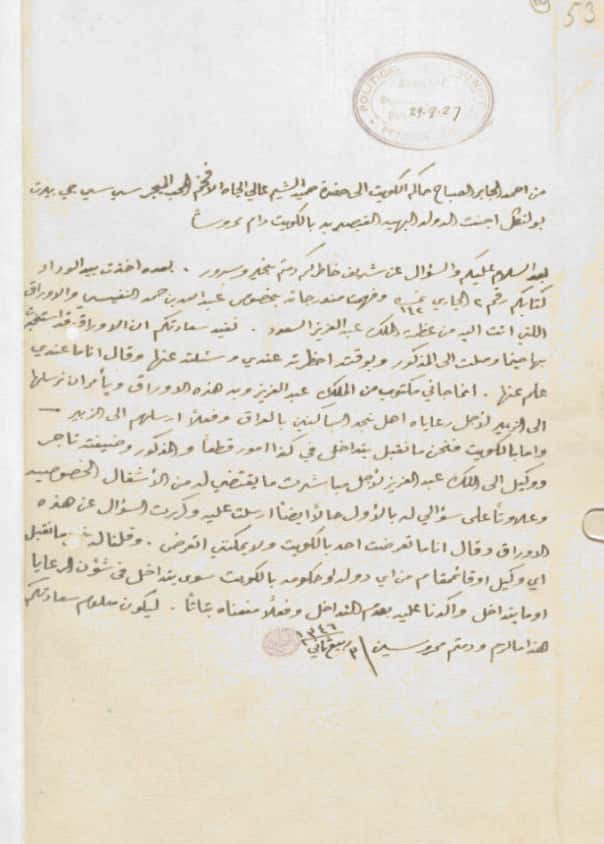 53
POLITICAL
29.9.27
من احمد الجابر الصباح حاكم الكويت الى حضرة حميد الشيم عالي الجاه الافخم المحب المبجل سي سي جي
بولتكل اجنت الدولة البهية القيصرية بالكويت دام محروسا
بعد السلام عليكم والسؤال عن شريف خاطركم دمتم بخير وسرور . بعده اخذت بيد الوداد
كتابكم رقم ٢ الجاري نمرة وفهمت مندرجاته بخصوص عبد الله بن حمد النفيسي والاوراق
اللتي اتت اليه من عظمة الملك عبد العزيز السعود . نفيد سعادتكم ان الاوراق قد
بها حينما وصلت الى المذكور وبوقته احظرته عندي وسئلته عنها وقال انا ما عندي
علم عنها . انما جاني مكتوب من الملك عبد العزيز وبه هذه الاوراق ويأمرني ان نرسلها
الى الزبير لأجل رعاياه اهل نجد الساكنين بالعراق وفعلاً ارسلتهم الى الزبير —
واما بالكويت فنحن ما نقبل يتداخل في كذا امور قطعاً والمذكور وضيفته تاجر
ووكيل الى الملك عبد العزيز لأجل مباشرت ما يقتضي له من الأشغال الخصوصيه
وعلاوتاً على سؤالي له بالأول حالاً ايضاً ارسلت عليه وكررت السؤال عن هذه
الاوراق وقال انا ما تعرضت احد بالكويت ولا يمكنني اتعرض . وقلنا له ما نقبل
اي وكيل او قائمقام من اي دوله او حكومه بالكويت سوى يتداخل في شؤن الرعايا
او ما يتداخل واكدنا عليه بعدم التداخل وفعلاً منعناه بتاتاً . ليكون معلوم سعادتكم
هذا ما لزم ودمتم محروسين ٣ ربيع ثاني ١٣٤٦